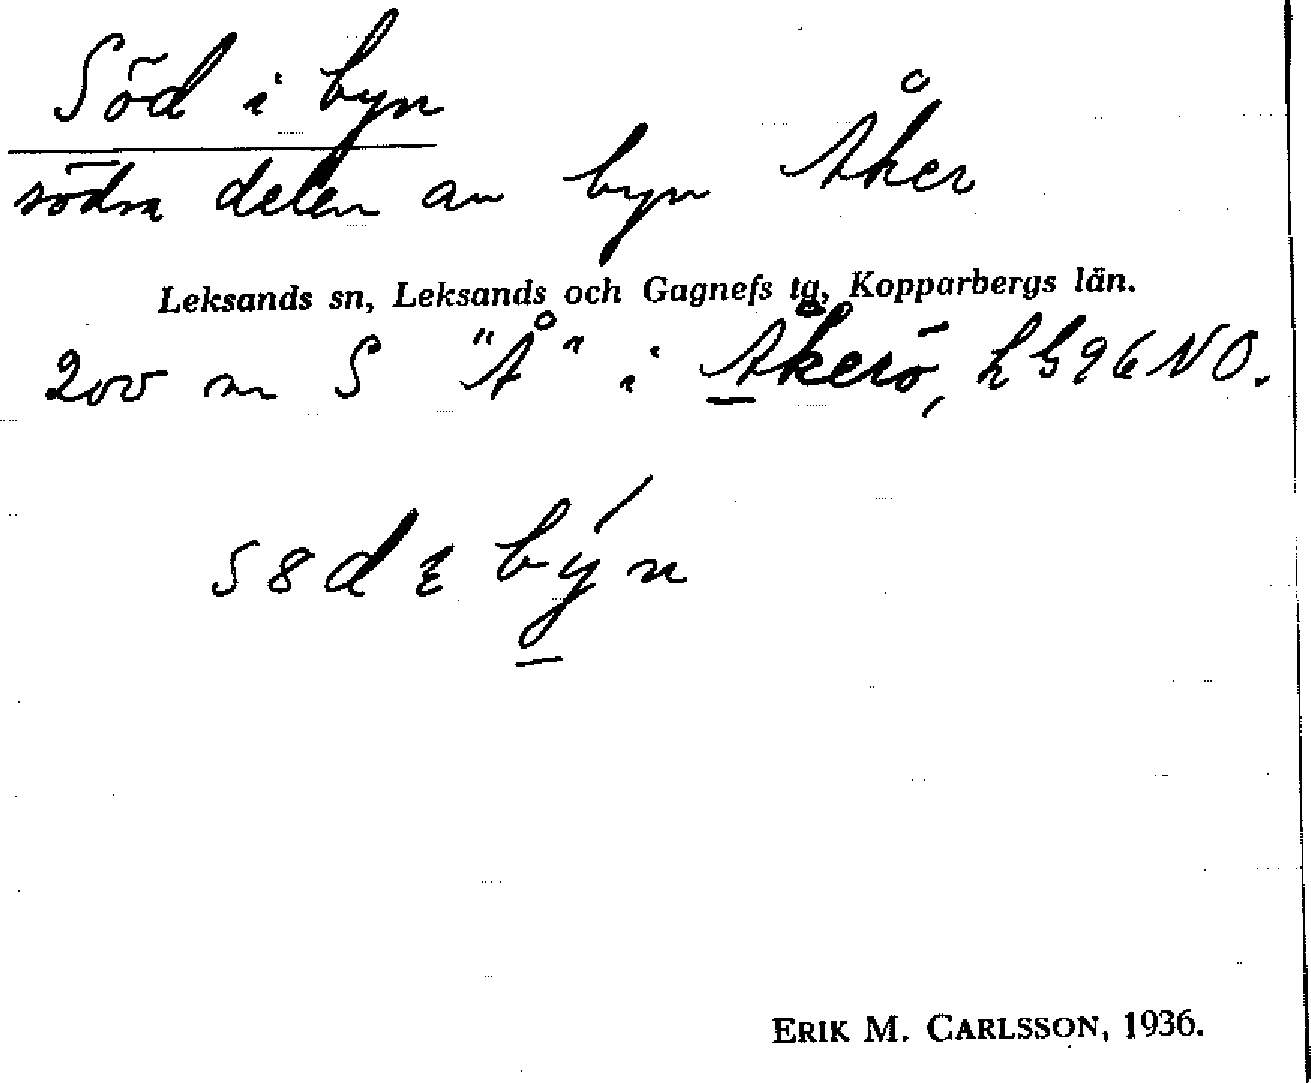 Söd i byn
södra delen av byn Åker
Leksands sn, Leksands och Gagnefs tg, Kopparbergs län.
200 m S "Å" i Åkerö, h G 96 NO.
s8d ɩ býn
ERIK M. CARLSSON, 1936.